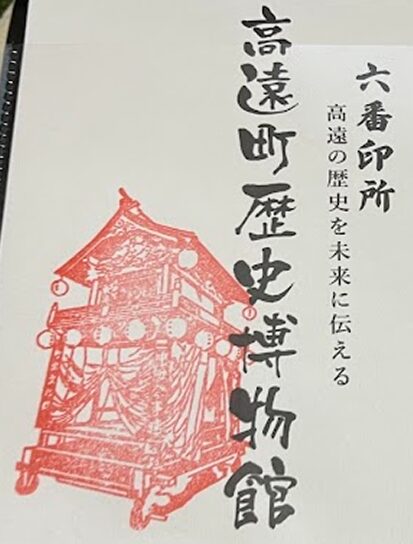 六番印所
高遠の歴史を未来に伝える
高遠町歴史博物館